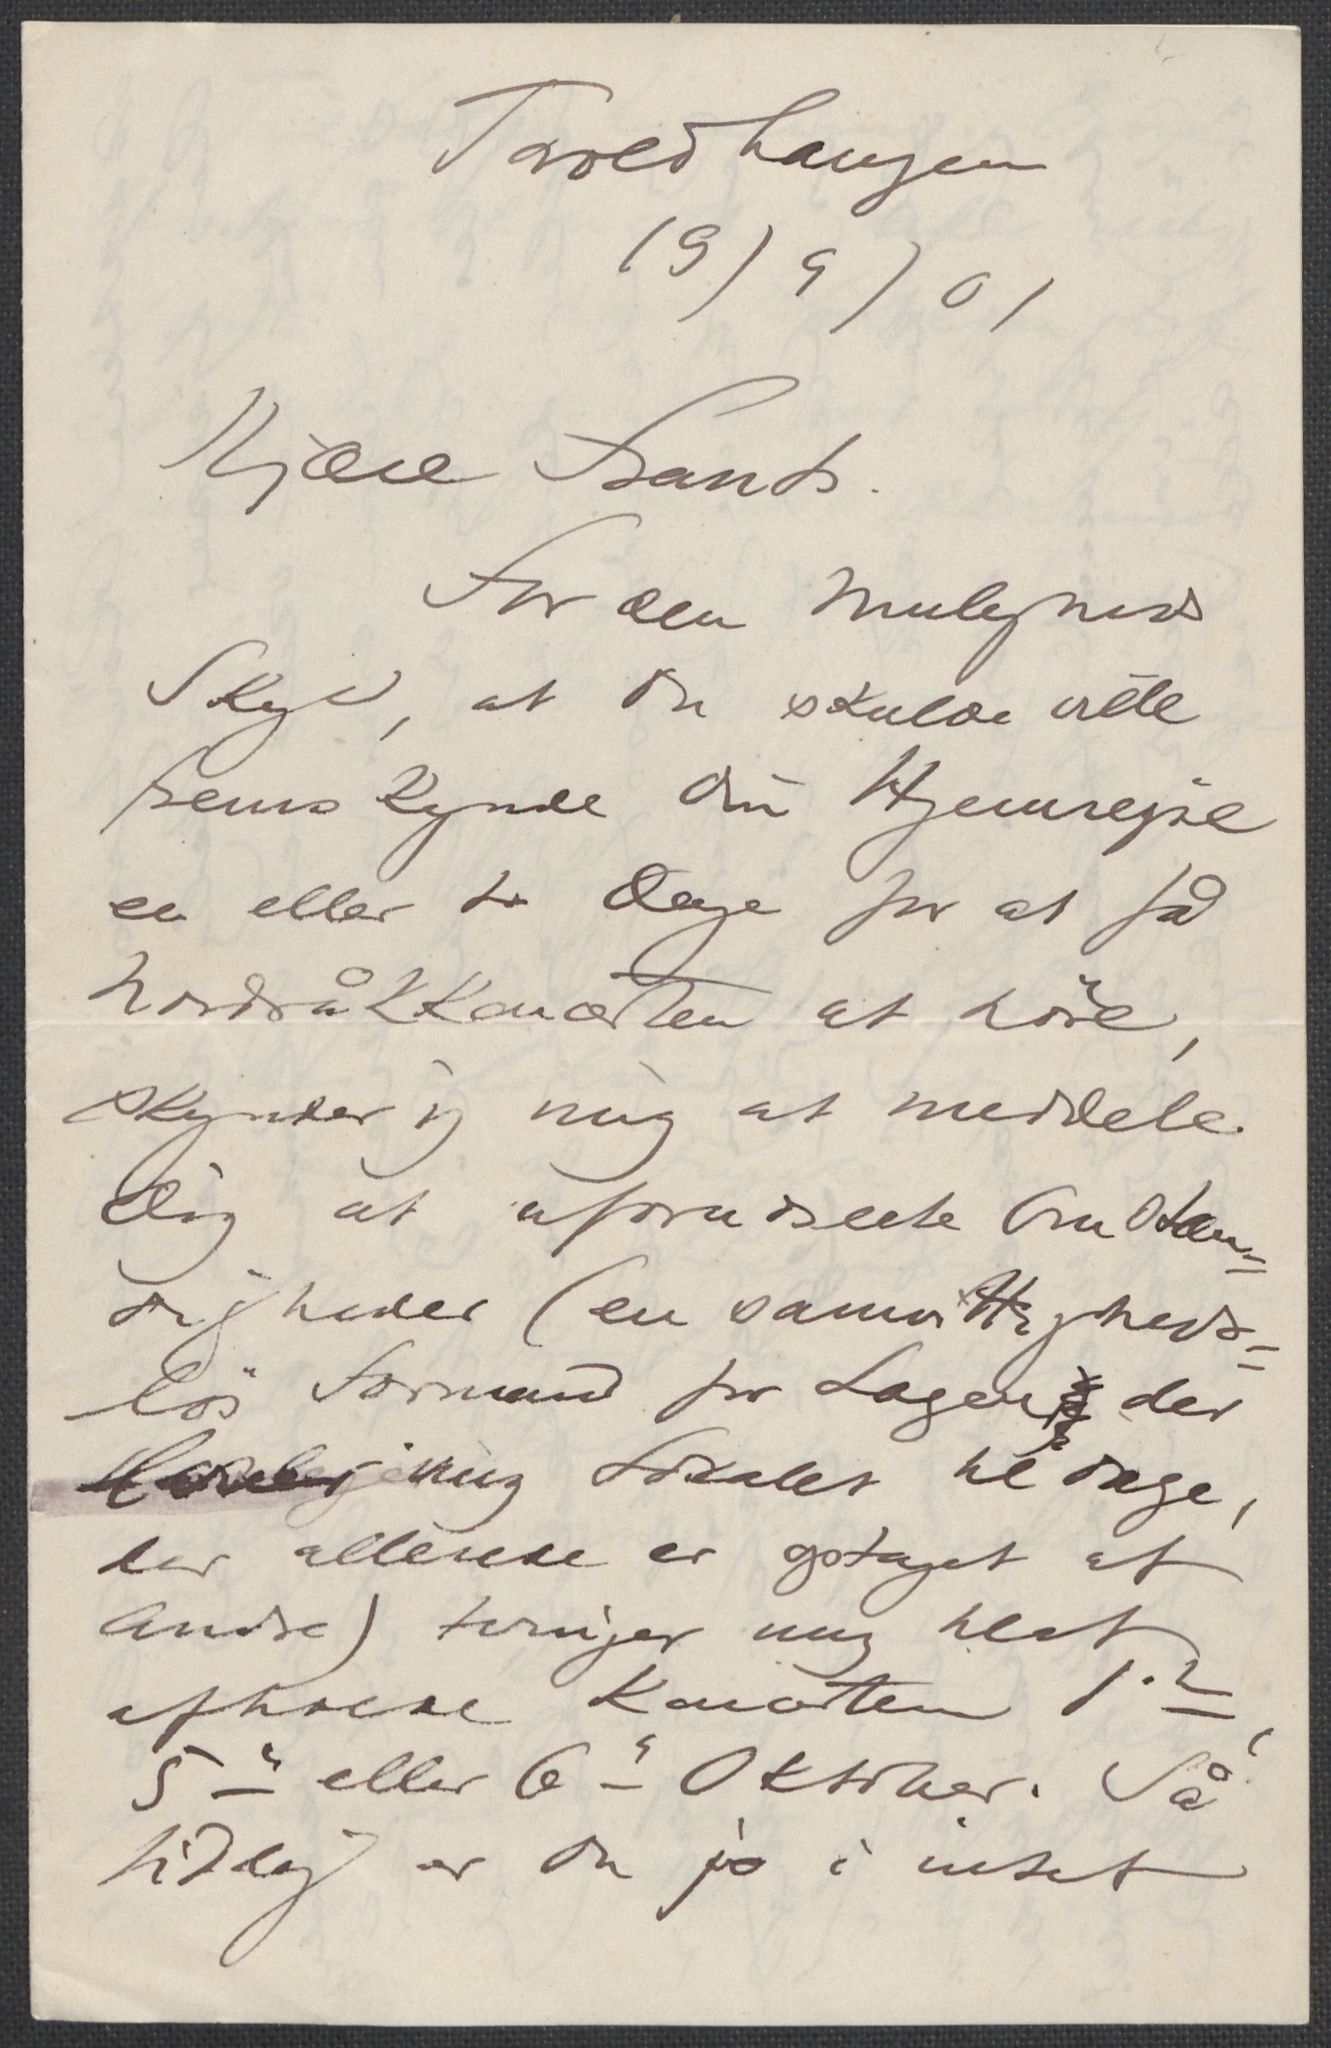 Troldhaugen
19/9/01
Kjære Frants.
For den Muligheds
Skyld, at Du skulde ville
fremskynde Din Hjemrejse
en eller to Dage for at få
Nordråkkoncerten at höre,
skynder jeg mig at meddele
Dig at uforudseete Omstæn=
digheder (en samvittigheds=
lös Formand for Logen, der
mig Lokalet til Dage,
der allerede er optaget af
Andre) tvinger mig til at
afholde Koncerten
5te eller 6te Oktober. Så
tidlig er Du jo i intet